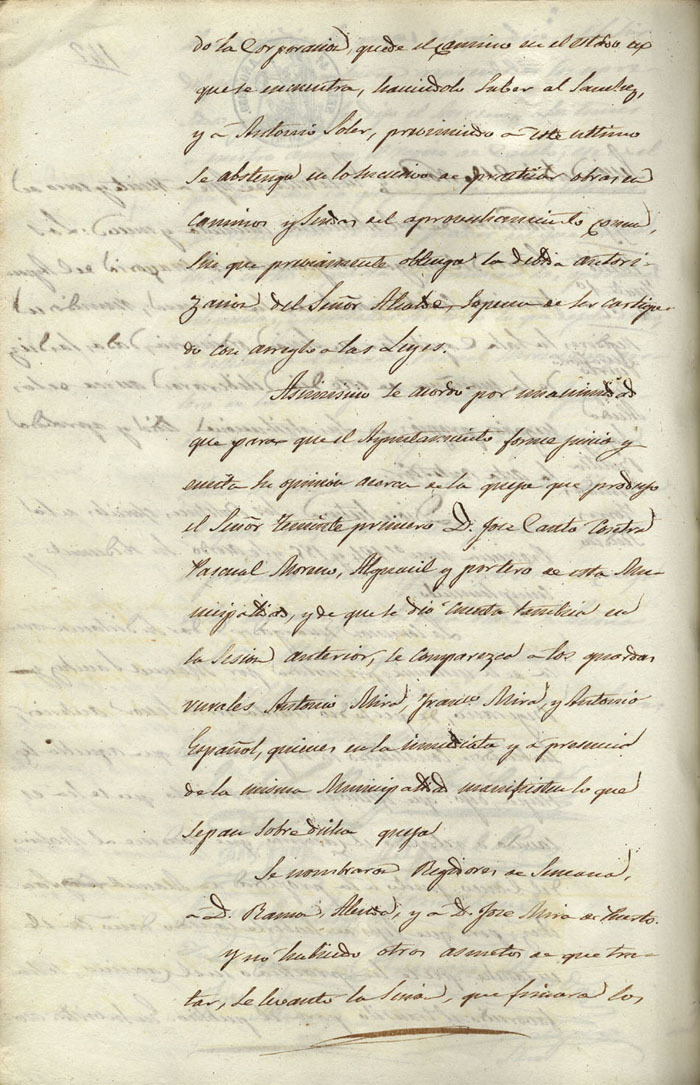 do la Corporacion, quede el camino en el estado en
que se encuentra, haciendolo saber al Sanchez,
y a Antonio Soler, previniendo a este ultimo
se abstenga en lo sucesivo de practicar obras en
caminos y sendas del aprovechamiento comun,
sin que previamente obtenga la debida autori-
zacion del Señor Alcalde, so pena de ser castiga-
do con arreglo a las Leyes.
Asimismo se acordó por unanimidad
que para que el Ayuntamiento forme juicio y
emita su opinion acerca de la queja que produjo
el Señor Teniente primero D. Jose Canto Contra
Pascual Moreno, Alguacil y portero de esta Mu-
nicipalidad, y de que se dio cuenta tambien en
la Sesion anterior, se comparezca a los guardas
rurales Antonio Mira, Franco Mira, y Antonio
Español, quienes en la inmediata y a presencia
de la misma Municipalidad manifiesten lo que
sepan sobre dicha queja
Se nombraron Regidores de Semana,
a D. Ramon, y a D. Jose Mira de Huerto.
Y no habiendo otros asuntos de que tra-
tar, se levantó la Sesion, que firmara los